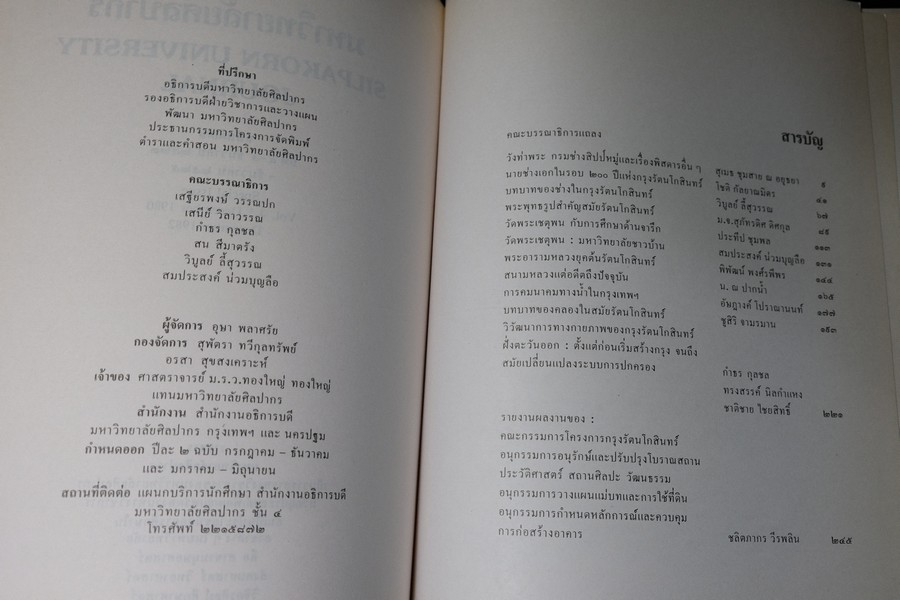 ที่ปรึกษา
อธิการบดีมหาวิทยาลัยศิลปากร
รองอธิการบดีฝ่ายวิชาการและวางแผน
พัฒนา มหาวิทยาลัยศิลปากร
ประธานกรรมการโครงการจัดพิมพ์
ตำราและคำสอน มหาวิทยาลัยศิลปากร
คณะบรรณาธิการ
เสฐียรพงษ์ วรรณปก
เสนีย์ วิลาวรรณ
กำธร กุลชล
สน สีมาตรัง
วิบูลย์ ลี้สุวรรณ
สมประสงค์ น่วมบุญลือ
ผู้จัดการ อุษา พลาศรัย
กองจัดการ สุพัตรา ทวีกุลทรัพย์
อรสา สุขสงเคราะห์
เจ้าของ ศาสตราจารย์ ม.ร.ว.ทองใหญ่ ทองใหญ่
แทนมหาวิทยาลัยศิลปากร
สำนักงาน สำนักงานอธิการบดี
มหาวิทยาลัยศิลปากร กรุงเทพฯ และ นครปฐม
กำหนดออก ปีละ ๒ ฉบับ กรกฎาคม – ธันวาคม
และ มกราคม – มิถุนายน
สถานที่ติดต่อ แผนกบริการนักศึกษา สำนักงานอธิการบดี
มหาวิทยาลัยศิลปากร ชั้น ๔
โทรศัพท์ ๒๒๑๕๘๗๒
สารบัญ
คณะบรรณาธิการแถลง
วังท่าพระ กรมช่างสิปป์หมู่และเรื่องพิสดารอื่น ๆ สุเมธ ชุมสาย ณ อยุธยา ๕
นายช่างเอกในรอบ ๒๐๐ ปีแห่งกรุงรัตนโกสินทร์ โชติ กัลยาณมิตร ๔๑
บทบาทของช่างในกรุงรัตนโกสินทร์ วิบูลย์ ลี้สุวรรณ ๖๗
พระพุทธรูปสำคัญสมัยรัตนโกสินทร์ ม.จ.สุภัทรดิศ ดิศกุล ๘๕
วัดพระเชตุพน กับการศึกษาด้านจารึก ประทีป ชุมพล ๑๑๓
วัดพระเชตุพน : มหาวิทยาลัยชาวบ้าน สมประสงค์ น่วมบุญลือ ๑๓๑
พระอารามหลวงยุคต้นรัตนโกสินทร์ พิพัฒน์ พงศ์รพีพร ๑๔๔
สนามหลวงแต่อดีตถึงปัจจุบัน น. ณ ปากน้ำ ๑๖๕
การคมนาคมทางน้ำในกรุงเทพฯ อัษฎางค์ โปราณานนท์ ๑๗๗
บทบาทของคลองในสมัยรัตนโกสินทร์ ชูสิริ จามรมาน ๑๙๓
วิวัฒนาการทางกายภาพของกรุงรัตนโกสินทร์
ฝั่งตะวันออก : ตั้งแต่ก่อนเริ่มสร้างกรุง จนถึง
สมัยเปลี่ยนแปลงระบบการปกครอง
กำธร กุลชล
ทรงสรรค์ นิลกำแหง
ชาติชาย ไชยสิทธิ์ ๒๒๑
รายงานผลงานของ :
คณะกรรมการโครงการกรุงรัตนโกสินทร์
อนุกรรมการอนุรักษ์และปรับปรุงโบราณสถาน
ประวัติศาสตร์ สถานศิลปะ วัฒนธรรม
อนุกรรมการวางแผนแม่บทและการใช้ที่ดิน
อนุกรรมการกำหนดหลักการณ์และควบคุม
การก่อสร้างอาคาร ชลิตภากร วีรพลิน ๒๔๕